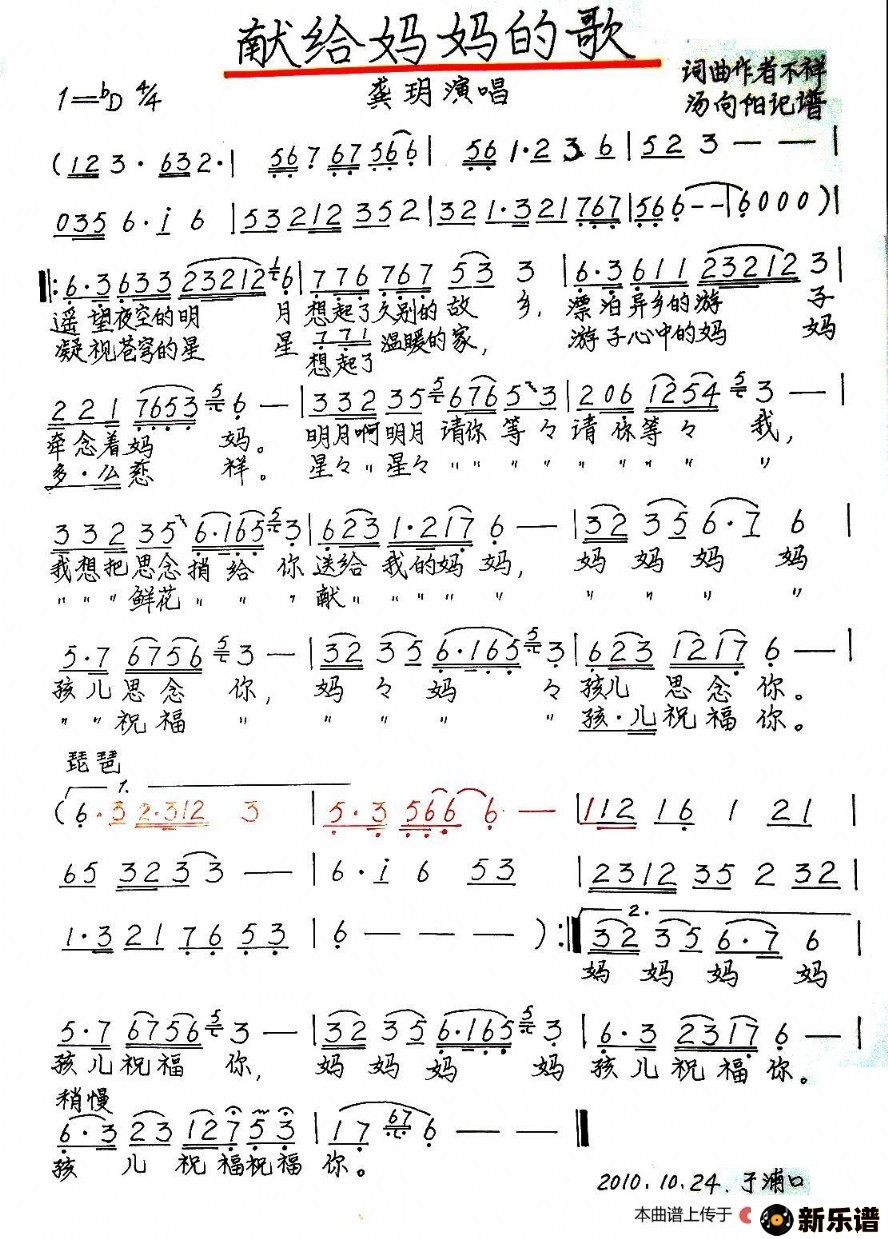 献给妈妈的歌
1=♭D 4/4 龚玥演唱 词曲作者不祥
汤向阳记谱
(12 3· 632·| 567 67 566| 561·2 3 6|5 2 3 — —|
035 6·i 6 |53212 352|321·321767|566 — —|6000)|
‖:6·3 633 23212 6|776 767 53 3 |6·3 611 23212 3|
遥望夜空的明 月 想起了久别的故 乡, 漂泊异乡的游 子
凝视苍穹的星 星 771 温暖的家, 游子心中的妈 妈
想起了
221 7653 6 — |332 35 676 5 3|206 1254 3 — |
牵念着妈 妈。 明月啊明月 请你 等々 请你等々 我,
多·么慈 祥。 星々〃星々 〃〃 〃 〃 〃 〃 〃 〃
332 35 6·165 3|623 1·217 6 — |32 35 6·1 6 |
我想把思念捎给 你 送给 我的妈 妈, 妈 妈 妈 妈
〃〃〃鲜花〃 〃 〃 献〃 〃〃〃 〃 〃 〃 〃 〃
5·7 6756 3 — |32 35 6·165 3|623 1217 6 — |
孩儿思念 你, 妈々妈 々 孩儿 思念你。
〃〃祝福 〃 〃 〃 〃 〃 孩·儿祝福你。
琵琶
1.
(6·3 2·312 3 |5·3 566 6 — |112 16 1 21|
65 3233 — |6·i 6 53 |2312 35 2 32|
1·3 21 76 53 |6 — — — ):‖ 2. 32 35 6·7 6 |
妈 妈 妈 妈
5·7 6756 3 — |32 35 6·165 3 |6·3 2317 6 — |
孩儿祝福 你, 妈 妈 妈 妈 孩儿祝福你。
稍慢
6·3 23 127 53 |17 67 6 — — ‖
孩 儿 祝福祝福 你。
2010.10.24.于浦口
本曲谱上传于 新乐谱